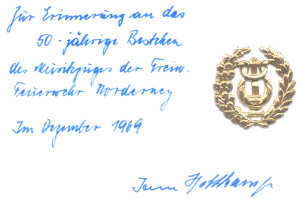 Zur Erinnerung an das
50-jährige Bestehen
des Musikzuges der Freiw.
Feuerwehr Norderney
Im Dezember 1969